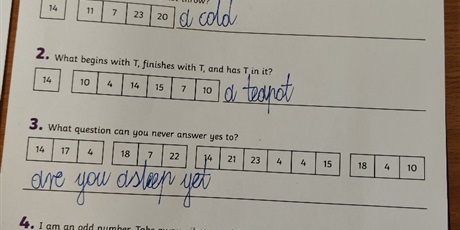 14 11 7 23 20 a cold
2. What begins with T, finishes with T, and has T in it?
14 10 4 14 15 7 10 a teapot
3. What question can you never answer yes to?
14 17 4 18 7 22 14 21 23 4 4 15 18 4 10
are you asleep yet
4. I am an odd number. Take